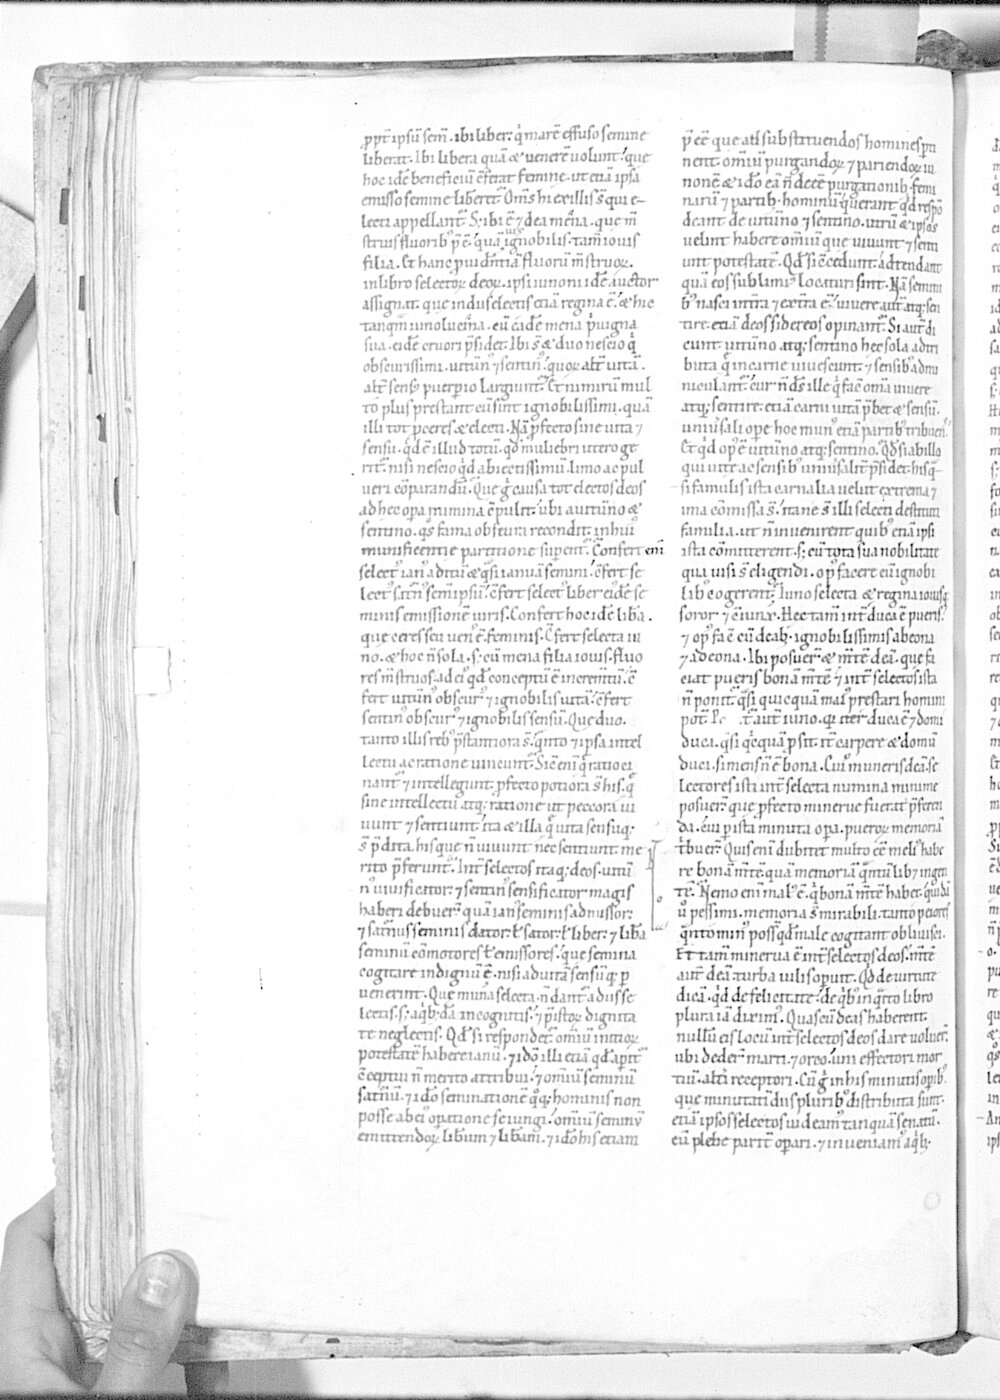 ꝓpt̄ ipsū sem̄. ibi liber. q̇ mareʒ effuso semine
liberat. Ibi libera quā & venerē volunt. que
hoc idē beneficiū c̄ferat femine. ut etiā ipsa
emisso semine liberet᷑. Om̄s hi ex illis s̄ qui se
lecti appellant᷑. S; ibi ē ⁊ dea mēna. que m̄
struis fluorib; p̄ē. quāuis ignobilis. tam̄ iouis
filia. Et hanc ꝓuidn̄tiā fluorū m̄struoꝝ.
in libro selectoꝝ deoꝝ. ipsi iunoni idē auctor
assignat. que in diis electis etiā regina ē. & hic
tanqm̄ iuno lucina. cū eadē mena p̄uigna
sua. eidē cruori p̄sidet. Ibi s̄ & duo nescio q̇
obscurissimi. uitūn᷒ ⁊ sentin᷒. quoꝝ alt̄ uitā.
alt̄ sens᷒ puerꝑio largiunt᷑. Et nimirū mul
to plus prestant cū sint ignobilissimi. quā
illi tot ꝓceres & electi. Nā ꝓfecto sine uita ⁊
sensu. qd̄ ē illud totū. qd̄ muliebri utero ge
rit᷑. nisi nescio qd̄ abiectissimū. limo ac pul
ueri cōparandū. Que g̊ causa tot electos deos
ad hec oꝑa minima c̄pulit. ubi a uitūno &
sentino. q̊s fama obscura recondit. in hui᷒
munificentie partitione suꝑent᷑. Confert eni
select᷒ ian᷒ aditū & q̊si ianuā semini. c̄fert se
lect᷒ satn̄ semī ipsū. c̄fert select᷒ liber eidē se
minis emissionē uiris. Confert hoc idē libā.
que ceres seu uen᷒ ē. feminis. C̄fert selecta iu
no. & hoc n̄ sola. s; cū mena filia iouis. fluo
res m̄struos. ad ei᷒ qd̄ conceptū ē incrementū. c̄
fert uitūn᷒ obscur᷒ ⁊ ignobilis uitā. c̄fert
sentin᷒ obscur᷒ ⁊ ignobilis sensū. Que duo.
tanto illis reb; p̄stantiora s̄. q̊nto ⁊ ipsa intel
lectu ac ratione uincunt᷑. Sic eni q̄ ratioci
nant᷑ ⁊ intellegunt. ꝓfecto potiora s̄ his. q̄
sine intellectu atq; ratione ut peccora ui
uunt ⁊ sentiunt. ita & illa q̄ uita sensuq;
s̄ p̄dita. his que n̄ uiuunt nec sentiunt me
rito p̄ferunt᷑. Int̄ selectos itaq; deos. uitū
n᷒ uiuificator ⁊ sentin᷒ sensificator magis
haberi debuer̄. quā ian᷒ seminis admissor.
⁊ satn̄us seminis dator. ł sator. ł liber. ⁊ libā
seminū cōmotores ł emissores. que semina
cogitare indignū ē. nisi ad uitā sensūq; ꝑ
uenerint. Que mun̄a selecta. n̄ dant᷑ a diis se
lectis. s; a q̇b;dā incognitis. ⁊ p̄ istoꝝ dignita
te neglectis. Qd̄ si respondet᷑. omīū initioꝝ
potestatē habere ianū. ⁊ idō illi etiā qd̄ aꝑit᷑
c̄ceptui n̄ merito attribui. ⁊ omīū seminū
satn̄ū. ⁊ idō seminationē q̊q; hominis non
posse ab ei᷒ oꝑatione seiungi. omīū seminū
emittendoꝝ liberū ⁊ libam̄. ⁊ idō his etiam
p̄ēē que ad substituendos homines ꝑti
nent. omīū purgandoꝝ ⁊ pariendoꝝ iu
nonē & idō eā n̄ deēē purgationib; femi
narū ⁊ partib; hominū. querant qd̄ respō
deant de uitūno ⁊ sentino. utrū & ipsos
uelint habere omīū que uiuunt ⁊ senti
unt potestatē. Qd̄ si c̄cedunt. adtendant
quā eos sublimi᷒ locaturi sint. Nā semini
b; nasci int̄ra ⁊ ex t̄ra ē. uiuere aut̄ atq; sen
tire. etiā deos sidereos opinant᷑. Si aut̄ di
cunt. uitūno atq; sentino hec sola adtri
buta q̄ in carne uiuescunt. ⁊ sensib; admi
niculant᷑. cur n̄ ds̄ ille q̇ fac̄ omīa uiuere
atq; sentire. etiā carni uitā p̄bet & sensū.
uniūsali oꝑe hoc mun᷒ etiā partib; tribuen᷒.
Et qd̄ op᷒ ē uitūno atq; sentino. Qd̄ si ab illo
qui uite ac sensib; uniūsalit̄ p̄sidet. his q̊
si famulis ista carnalia uelut extrema ⁊
ima cōmissa s̄. itane s̄ illi selecti destituti
familia. ut n̄ inuenirent quib; etiā ipsi
ista cōmitterent. s; cū tota sua nobilitate
qua uisi s̄ eligendi. op᷒ facere cū ignobi
lib; cogerent᷑. Iuno selecta & regina iouisq;
soror ⁊ c̄iunx. Hec tam̄ int̄duca ē pueris.
⁊ op᷒ fac̄ cū deab; ignobilissimis abeona
⁊ adeona. Ibi posuer̄ & m̄tē deā. que fa
ciat pueris bonā m̄tē ⁊ int̄ selectos ista
n̄ ponit᷑. q̊si quicquā mai᷒ prestari homini
pot̄. Po t̄ aut̄ iuno. q̄ iter duca ē ⁊ domi
duca. q̊si q̇cquā ꝓsit. it̄ carpere & domū
duci. si mens n̄ ē bona. Cui᷒ muneris deā. se
lectores isti int̄ selecta numina minime
posuer̄. que ꝓfecto minerue fuerat p̄feren
da. cui ꝑ ista minuta oꝑa. pueroꝝ memoriā
t̄buer̄. Quis eni dubitet multo ēē meli᷒ habe
re bonā m̄tē. quā memoriā q̊ntūlib; ingen
tē. Nemo eni mal᷒ ē. q̇ bonā m̄tē habet. quidā
u᷒ pessimi. memoria s̄ mirabili. tanto peiores
q̊nto min᷒ poss̄ qd̄ male cogitant obliuisci.
Et tam̄ minerua ē int̄ selectos deos. m̄tē
aut̄ deā. turba uilis oꝑuit. Qd̄ de uirtute
dicā. qd̄ de felicitate. de q̇b; in q̊rto libro
plura iā dixim᷒. Quas cū deas haberent.
nullū eis locū int̄ selectos deos dare uoluer̄.
ubi deder̄ marti. ⁊ orco. uni effectori mor
tiū. alt̄i receptori. Cū g̊ in his minutis oꝑib;
que minutatī diis plurib; distributa sunt.
etiā ipsos selectos uideam᷒ tanquā senatū.
cū plebe parit̄ oꝑari. ⁊ inueniam᷒ a q̇b;